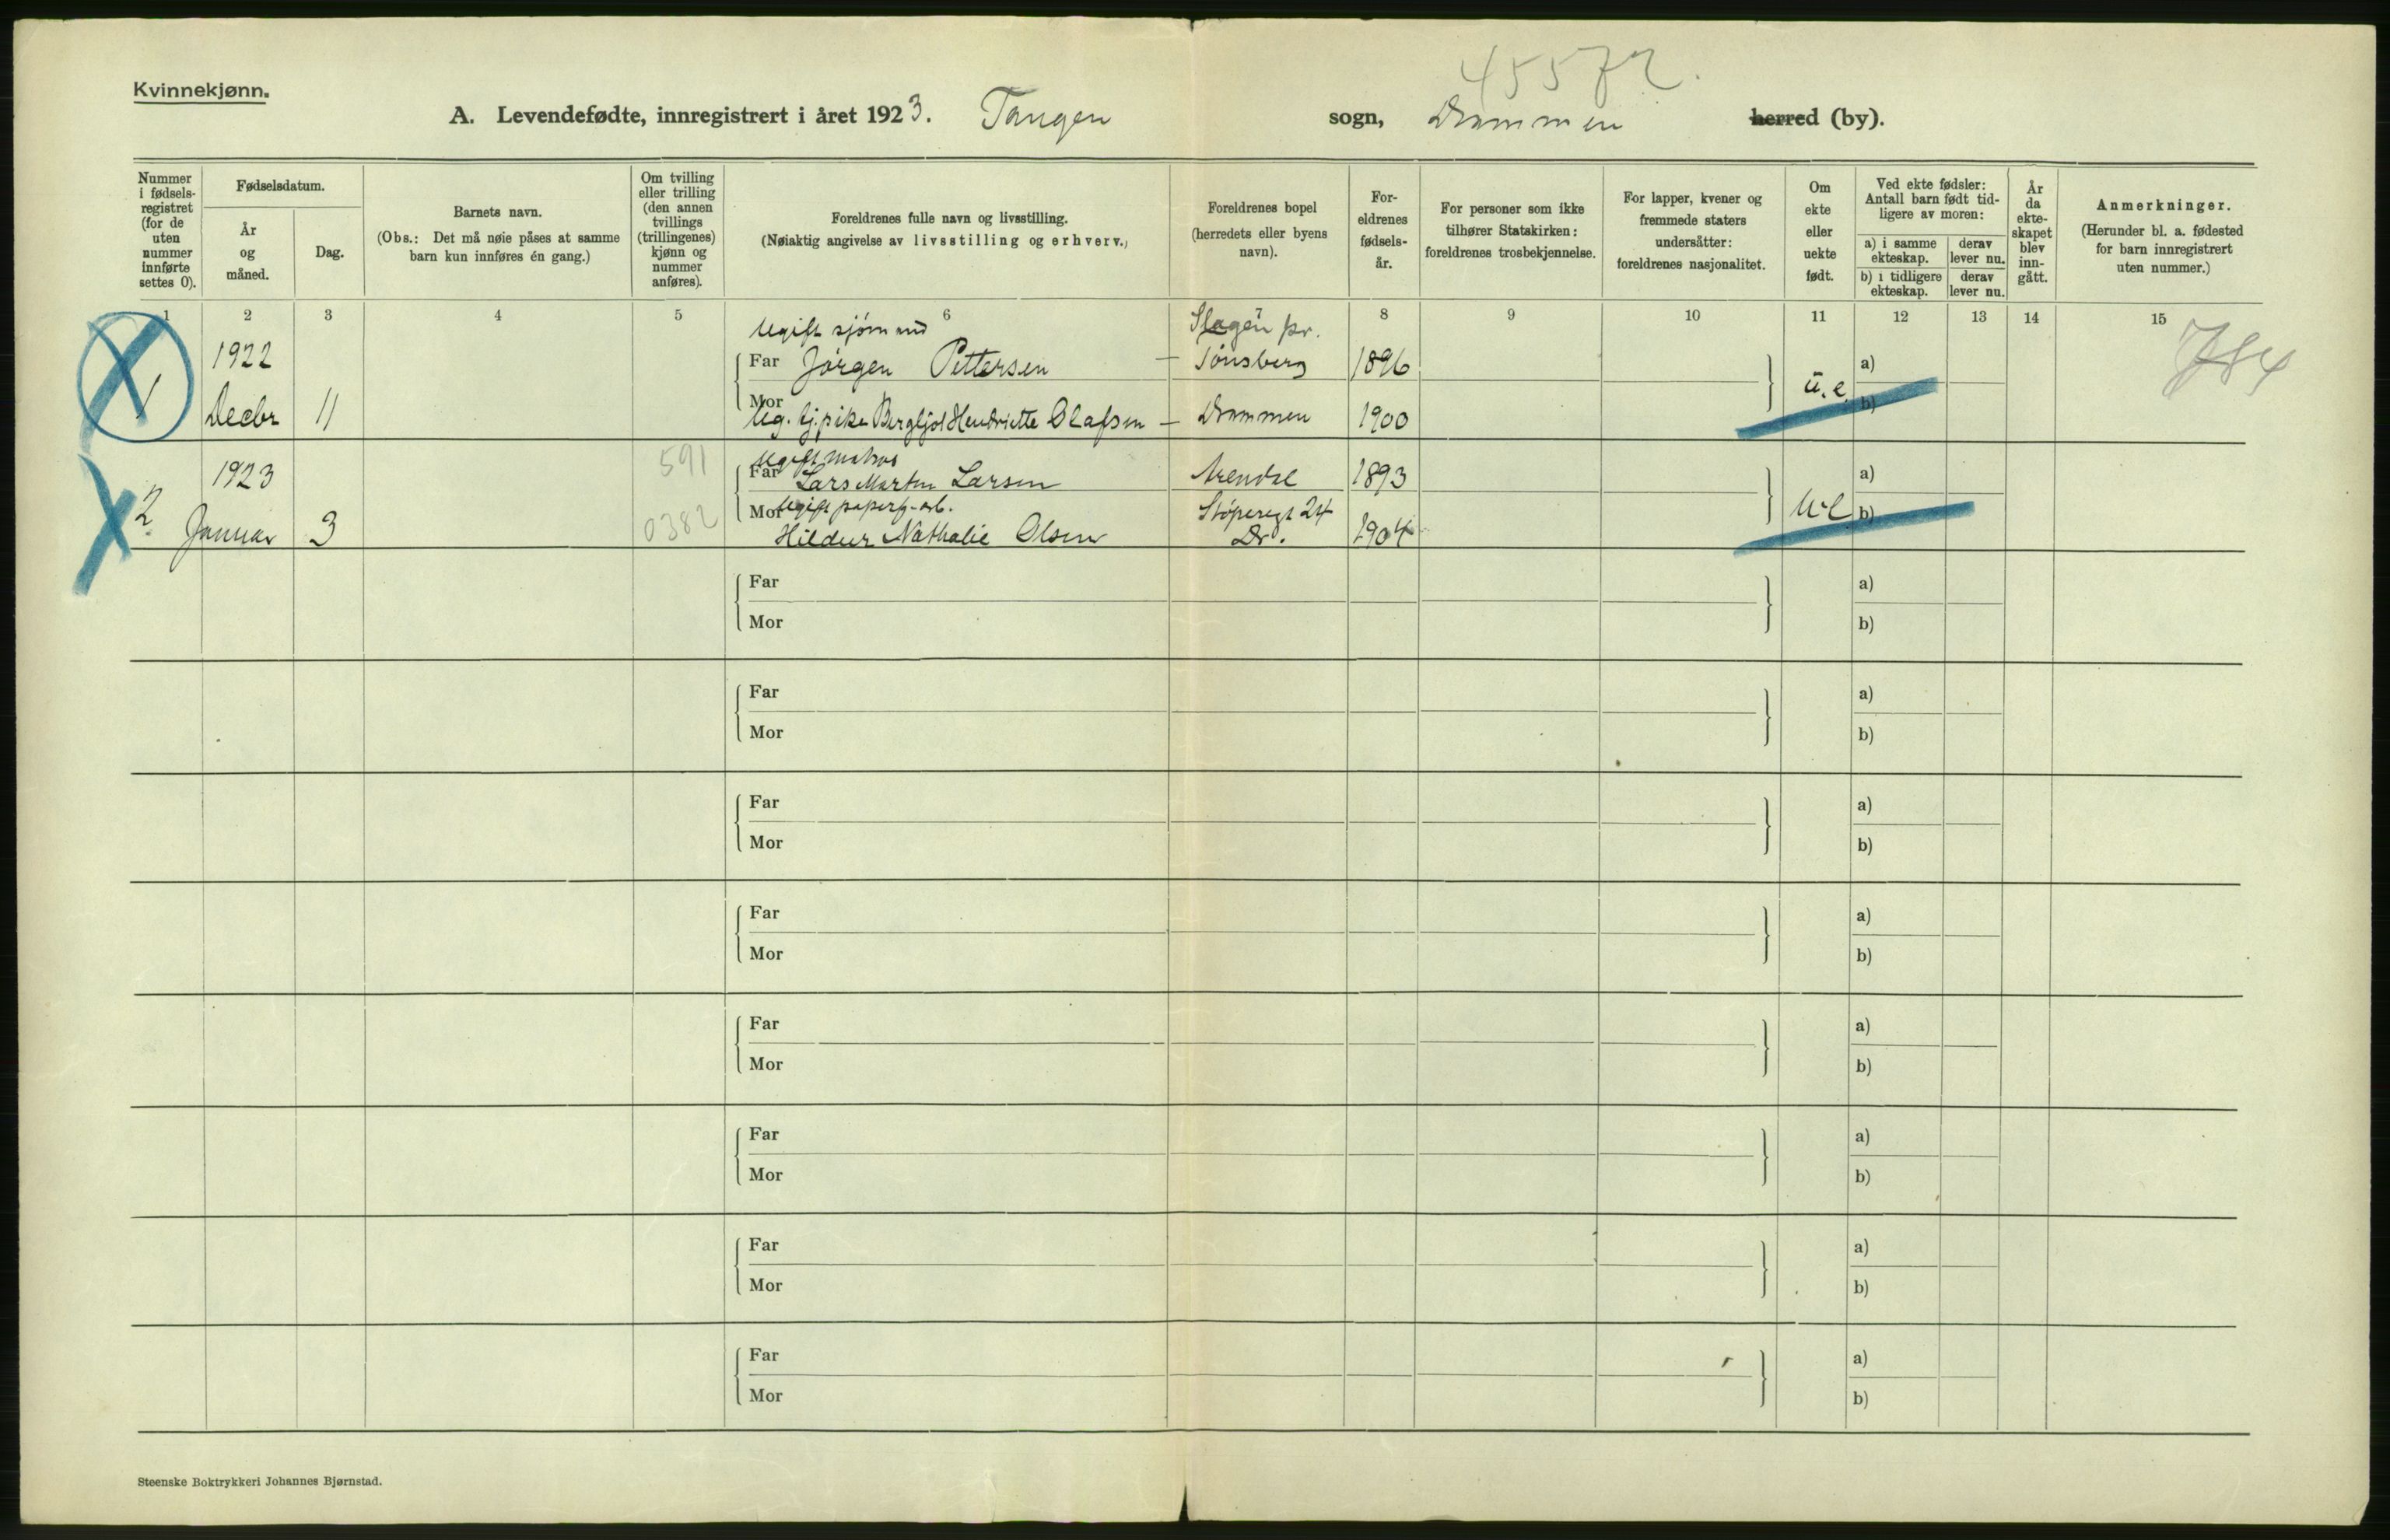 Kvinnekjønn.
45572.
A. Levendefødte, innregistrert i året 1923. Tangen sogn, Drammen herred (by).
Nummer i fødselsregistret (for de uten nummer innførte settes 0).
Fødselsdatum.
År og måned.
Dag.
Barnets navn.
(Obs.: Det må nøie påses at samme barn kun innføres én gang.)
Om tvilling eller trilling (den annen tvillings (trillingenes) kjønn og nummer anføres).
Foreldrenes fulle navn og livsstilling.
(Nøiaktig angivelse av livsstilling og erhverv.)
Foreldrenes bopel (herredets eller byens navn).
Foreldrenes fødselsår.
For personer som ikke tilhører Statskirken: foreldrenes trosbekjennelse.
For lapper, kvener og fremmede staters undersåtter: foreldrenes nasjonalitet.
Om ekte eller uekte født.
Ved ekte fødsler: Antall barn født tidligere av moren:
a) i samme ekteskap.
derav lever nu.
b) i tidligere ekteskap.
derav lever nu.
År da ekteskapet blev inngått.
Anmerkninger.
(Herunder bl. a. fødested for barn innregistrert uten nummer.)
1 2 3 4 5 6 8 9 10 11 12 13 14 15
Ugift sjømand Slagen pr.
1922 Far Jörgen Pettersen — Tönsberg 1896 a) 784
1 Decbr 11 Mor Ug. tj.pike Bergljot Hendriette Olafsen — Drammen 1900 u.e. b)
591 Ugift matros
1923 Far Lars Martin Larsen Arendal 1893 a)
2. Januar 3 0382 Mor Ugift paperf-arb. Støperegt 24 u e b)
Hildur Nathalie Olsen Dr. 1904
Far a)
Mor b)
Far a)
Mor b)
Far a)
Mor b)
Far a)
Mor b)
Far a)
Mor b)
Far a)
Mor b)
Far a)
Mor b)
Far a)
Mor b)
Steenske Boktrykkeri Johannes Bjørnstad.